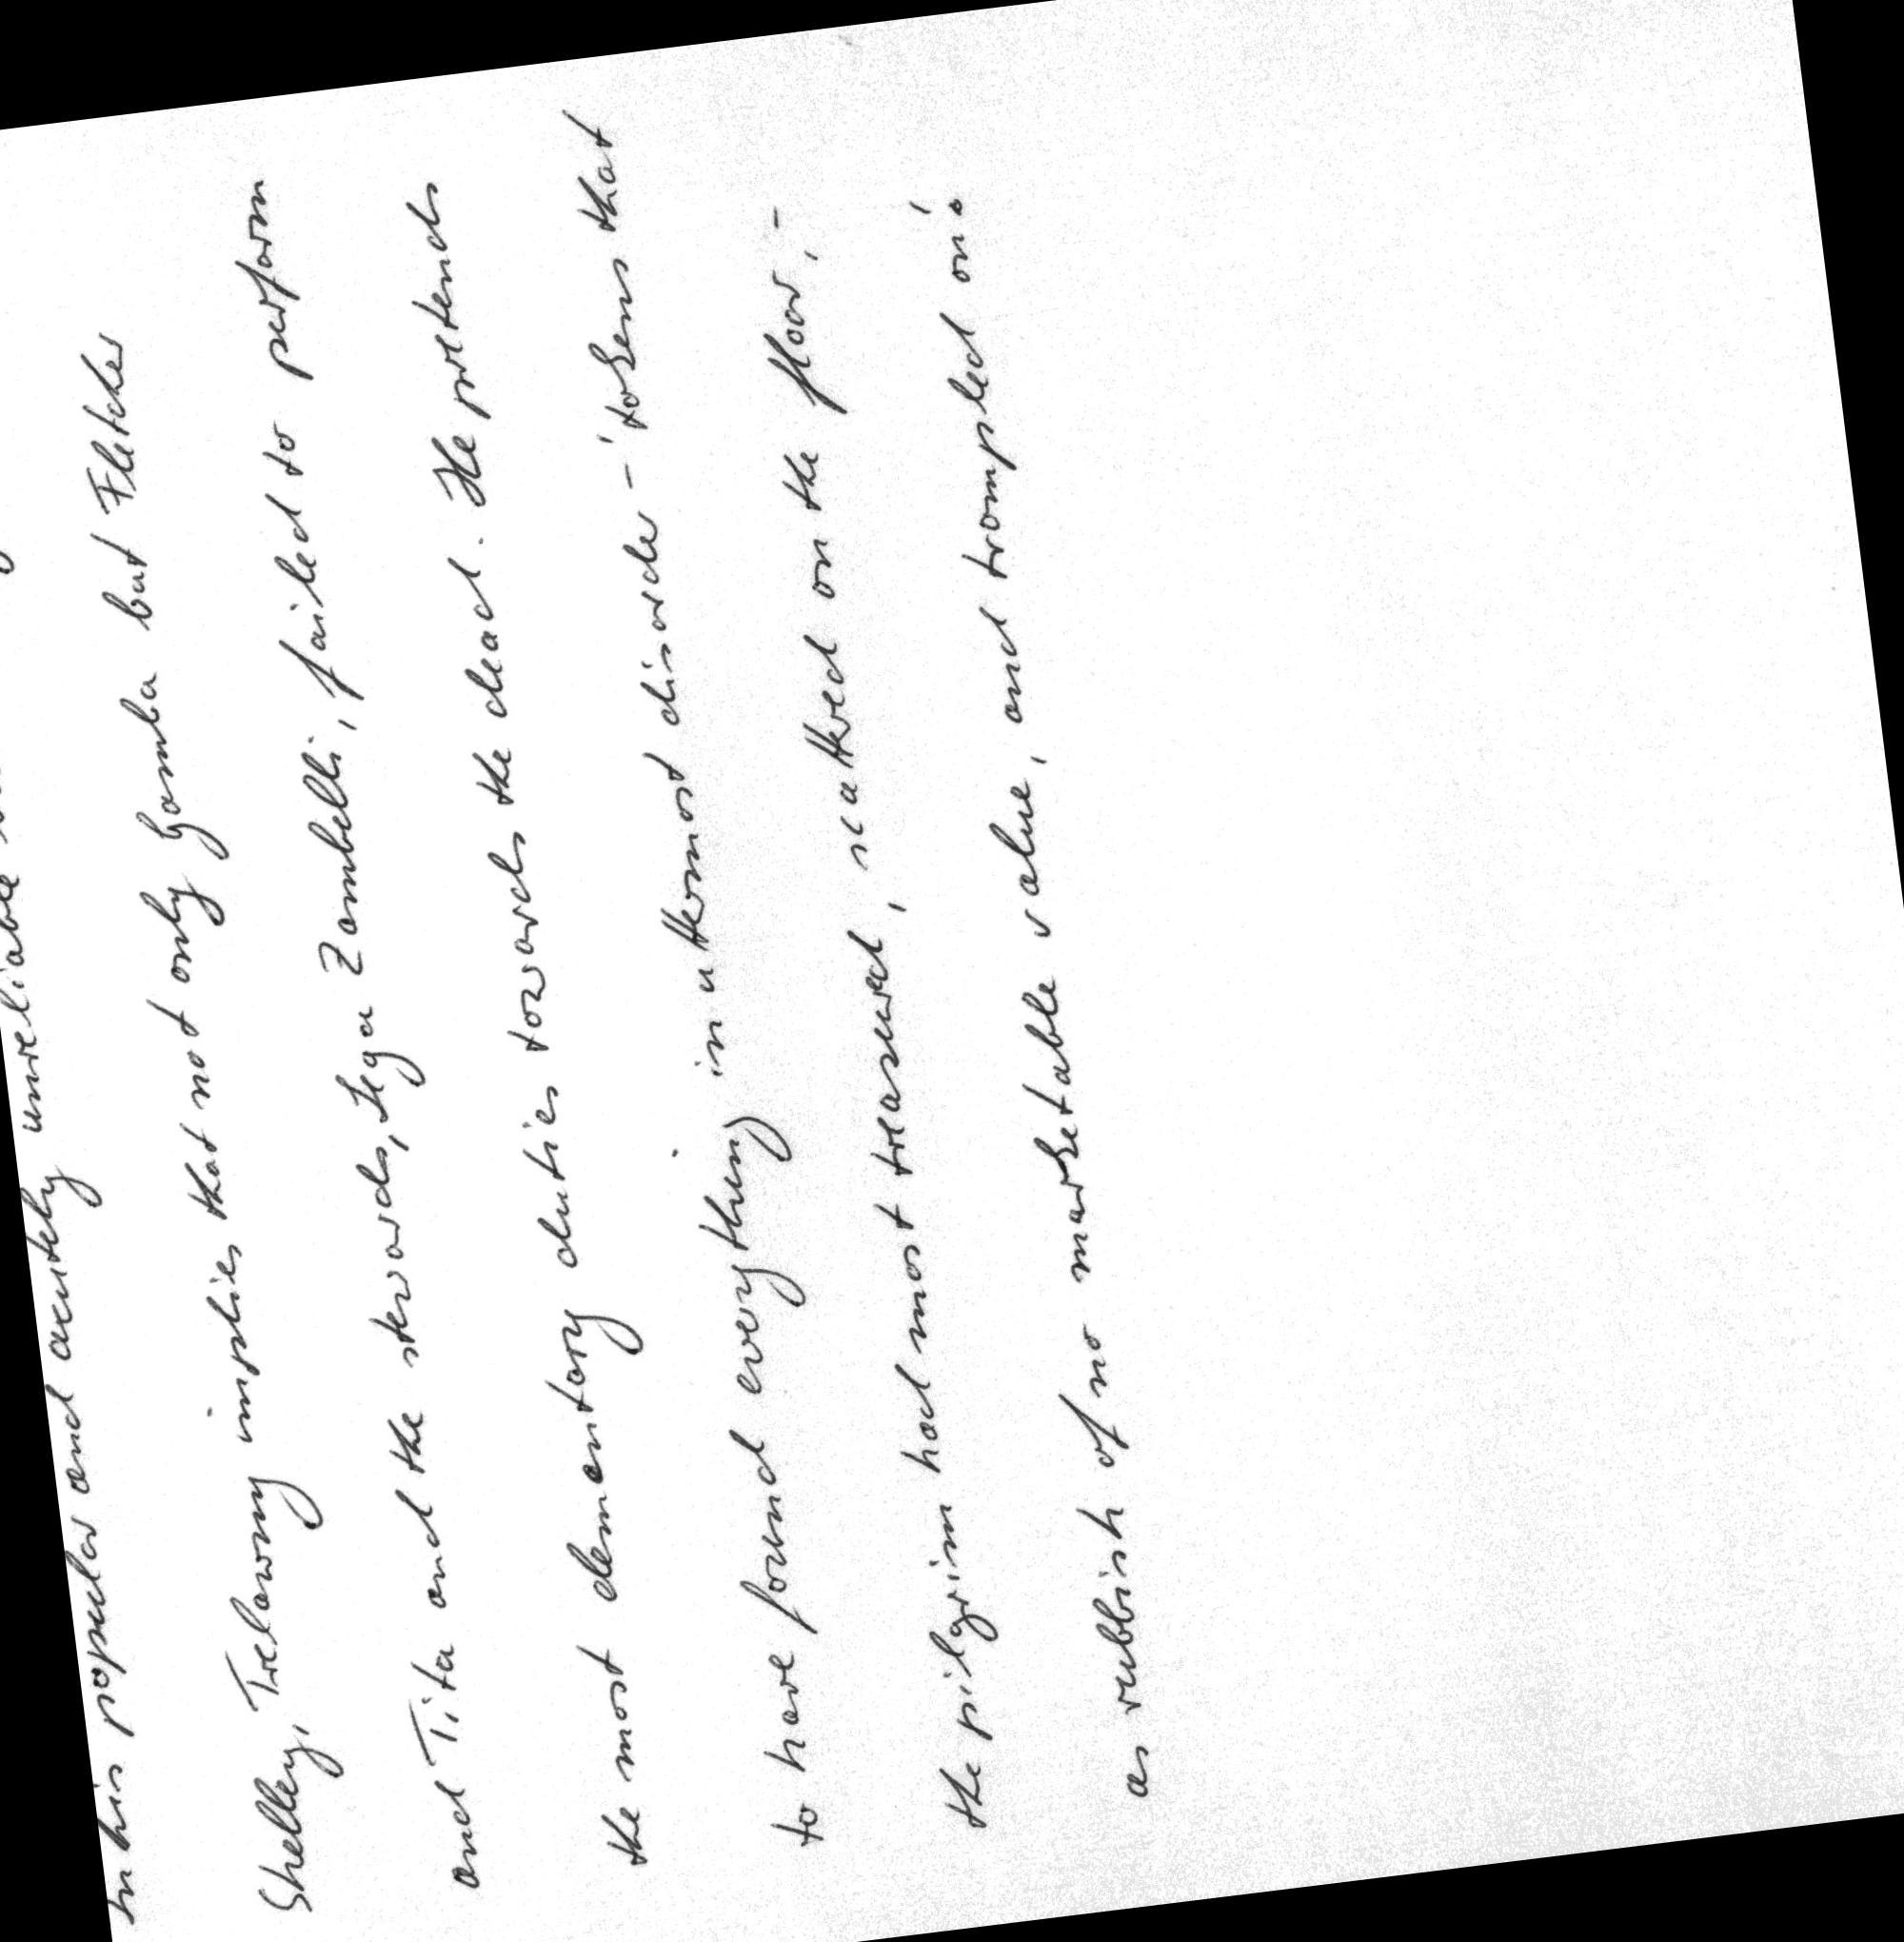 In his popular and acutely unreliable
Shelley, Trelawny implies that not only Gamba but Fletcher
and Tita and the stewards, Lega Zambelli, failed to perform
the most elementary duties towards the dead. He pretends
to have found everything in uttermost disorder - 'tokens that
the pilgrim had most treasured, scattered on the floor, -
as rubbish of no marketable value, and trampled on'.